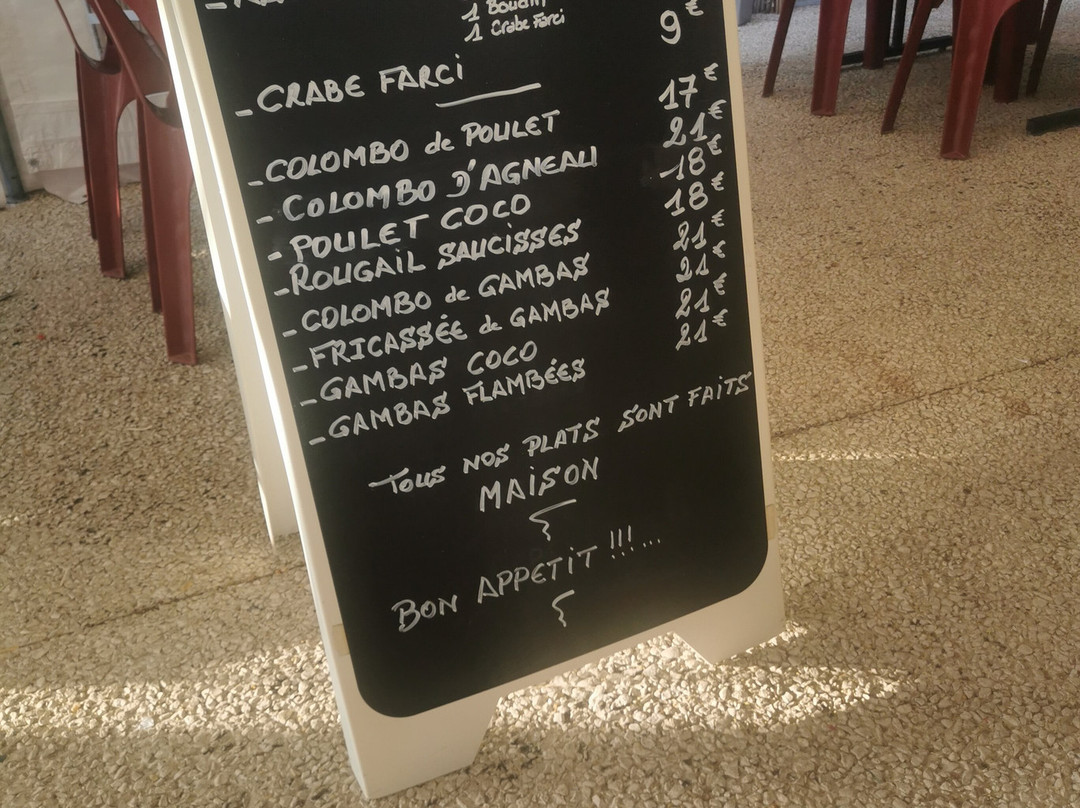 1 Boudin
1 Crabe Farci
- CRABE FARCi 9€
- COLOMBO de POULET 17€
- COLOMBO D'AGNEAU 21€
- POULET COCO 18€
- ROUGAiL SAUCiSSES 18€
- COLOMBO de GAMBAS 21€
- FRICASSÉE de GAMBAS 21€
- GAMBAS COCO 21€
- GAMBAS FLAMBÉES 21€
TOUS NOS PLATS SONT FAiTS
MAiSON
BON APPETiT !!!...